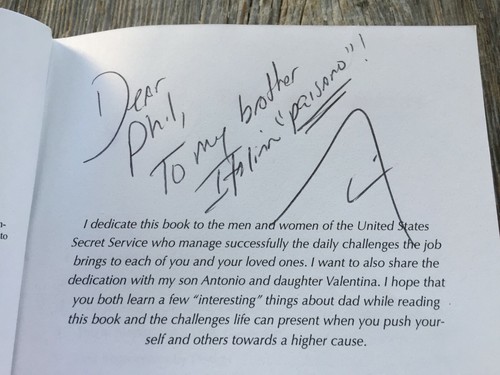 Dear
Phil,
To my brother
Italian "paisano"!
I dedicate this book to the men and women of the United States
Secret Service who manage successfully the daily challenges the job
brings to each of you and your loved ones. I want to also share the
dedication with my son Antonio and daughter Valentina. I hope that
you both learn a few "interesting" things about dad while reading
this book and the challenges life can present when you push your-
self and others towards a higher cause.
to